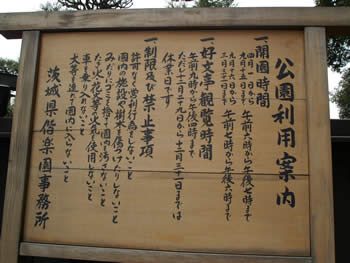 公園利用案内
一 開園時間
四月一日から
九月三十日まで 午前六時から午後七時まで
十月一日から
三月三十一日まで 午前七時から午後六時まで
一 好文亭観覧時間
午前九時から午後四時まで
ただし十二月二十九日から十二月三十一日までは
休業日です
一 制限及び禁止事項
許可なく営利行為をしないこと
園内の施設や樹木を傷つけたりしないこと
みだりにごみを捨て園内を汚さないこと
たき火花火等の火気を使用しないこと
車を乗り入れないこと
犬等を連れて園内に入らないこと
茨城県偕楽園事務所